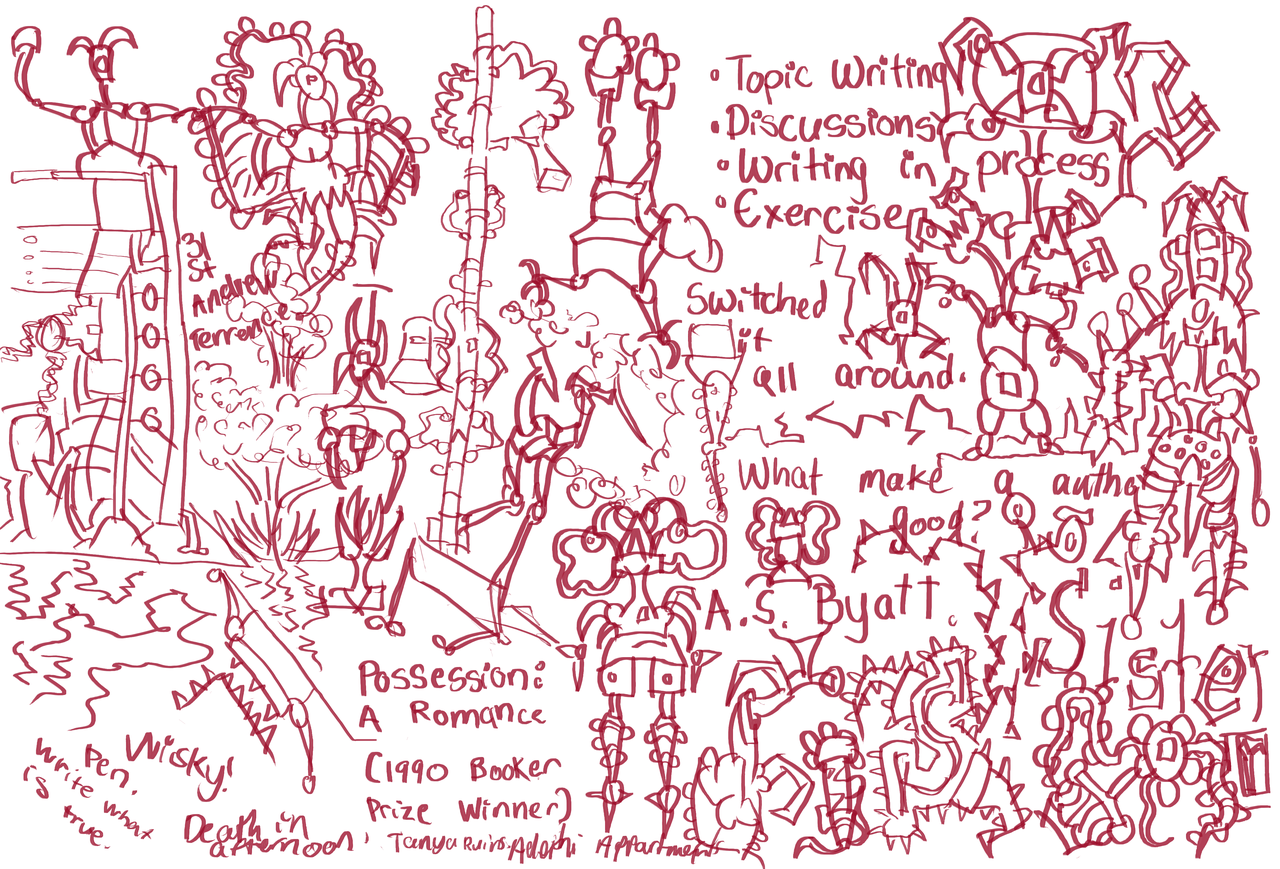 • Topic Writing
• Discussions
• Writing in process
• Exercise
31
St
Andrew
Terrence
Switched
it
all around.
What make a author
good?
A.S. Byatt.
Possession:
A Romance
(1990 Booker
Prize Winner)
Wisky!
Pen.
Write what
is true.
Death in
afternoon
Tanya Ruins. Adelphi Appartments